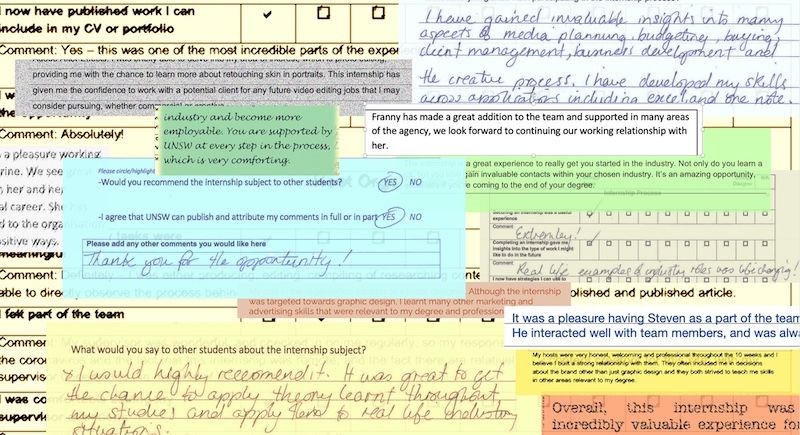 I now have published work I can
include in my CV or portfolio
Comment: Yes – this was one of the most incredible parts of the exper
providing me with the chance to learn more about retouching skin in portraits. This internship has
given me the confidence to work with a potential client for any future video editing jobs that I may
consider pursuing, whether
I have gained invaluable insights into many
aspects of media planning, budgeting, buying,
client management, business development and
the creative process. I have developed my skills
across applications including excel and one note.
industry and become more
employable. You are supported by
UNSW at every step in the process,
which is very comforting.
Franny has made a great addition to the team and supported in many areas
of the agency, we look forward to continuing our working relationship with
her.
Comment: Absolutely!
s a pleasure working
rine. We see
her and
al career. She has
d to the organisation
sitive ways.
meaningful
able to directly observe the process
Please circle/highlight
-Would you recommend the internship subject to other students? YES NO
-I agree that UNSW can publish and attribute my comments in full or in part YES NO
Please add any other comments you would like here
Thank you for the opportunity!
was a great experience to really get you started in the industry. Not only do you learn a
gain invaluable contacts within your chosen industry. It's an amazing opportunity,
coming to the end of your degree.
Internship Process
Comment
Extremley!
Completing an internship gave me
insights into the type of work I might
like to do in the future
Comment
Real life examples of industry roles was life changing!
Although the internship
was targeted towards graphic design. I learnt many other marketing and
advertising skills that were relevant to my degree and profession
published and published article.
I felt part of the team
It was a pleasure having Steven as a part of the team
He interacted well with team members, and was alwa
What would you say to other students about the internship subject?
I would highly reccomend it. It was great to get
the chance to apply theory learnt throughout
my studies and apply them to real life industry
situations.
My hosts were very honest, welcoming and professional throughout the 10 weeks and I
believe I built a strong relationship with them. They often included me in decisions
about the brand other than just graphic design and they both strived to teach me skills
in other areas relevant to my degree.
Overall, this internship was
incredibly valuable experience for